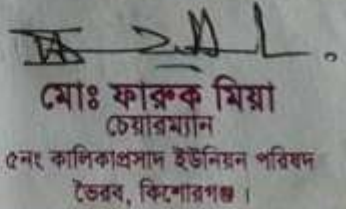 মোঃ ফারুক মিয়া
চেয়ারম্যান
৫নং কালিকাপ্রসাদ ইউনিয়ন পরিষদ
ভৈরব, কিশোরগঞ্জ।